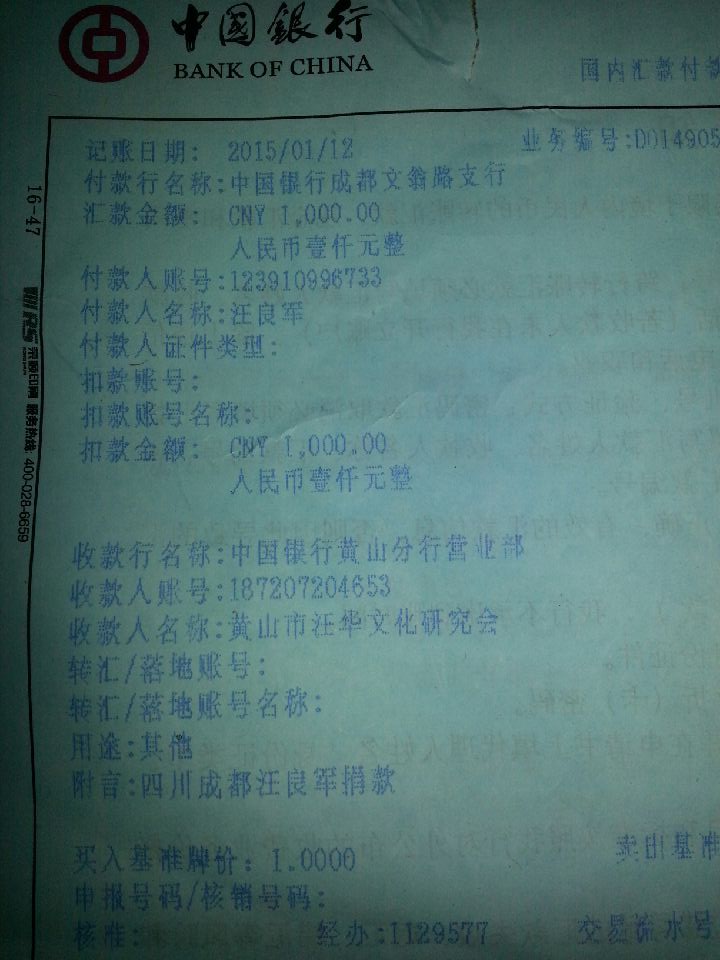 中国银行
BANK OF CHINA
国内汇款付款
记账日期: 2015/01/12
业务编号:D014905
付款行名称:中国银行成都文翁路支行
汇款金额: CNY 1,000.00
人民币壹仟元整
付款人账号:123910996733
付款人名称:汪良军
付款人证件类型:
扣款账号:
扣款账号名称:
扣款金额: CNY 1,000.00
人民币壹仟元整
收款行名称:中国银行黄山分行营业部
收款人账号:187207204653
收款人名称:黄山市汪华文化研究会
转汇/落地账号:
转汇/落地账号名称:
用途:其他
附言:四川成都汪良军捐款
买入基准牌价: 1.0000
卖出基准
申报号码/核销号码:
核准:
经办:1129577
交易流水号
16-47
服务热线 400-028-6659